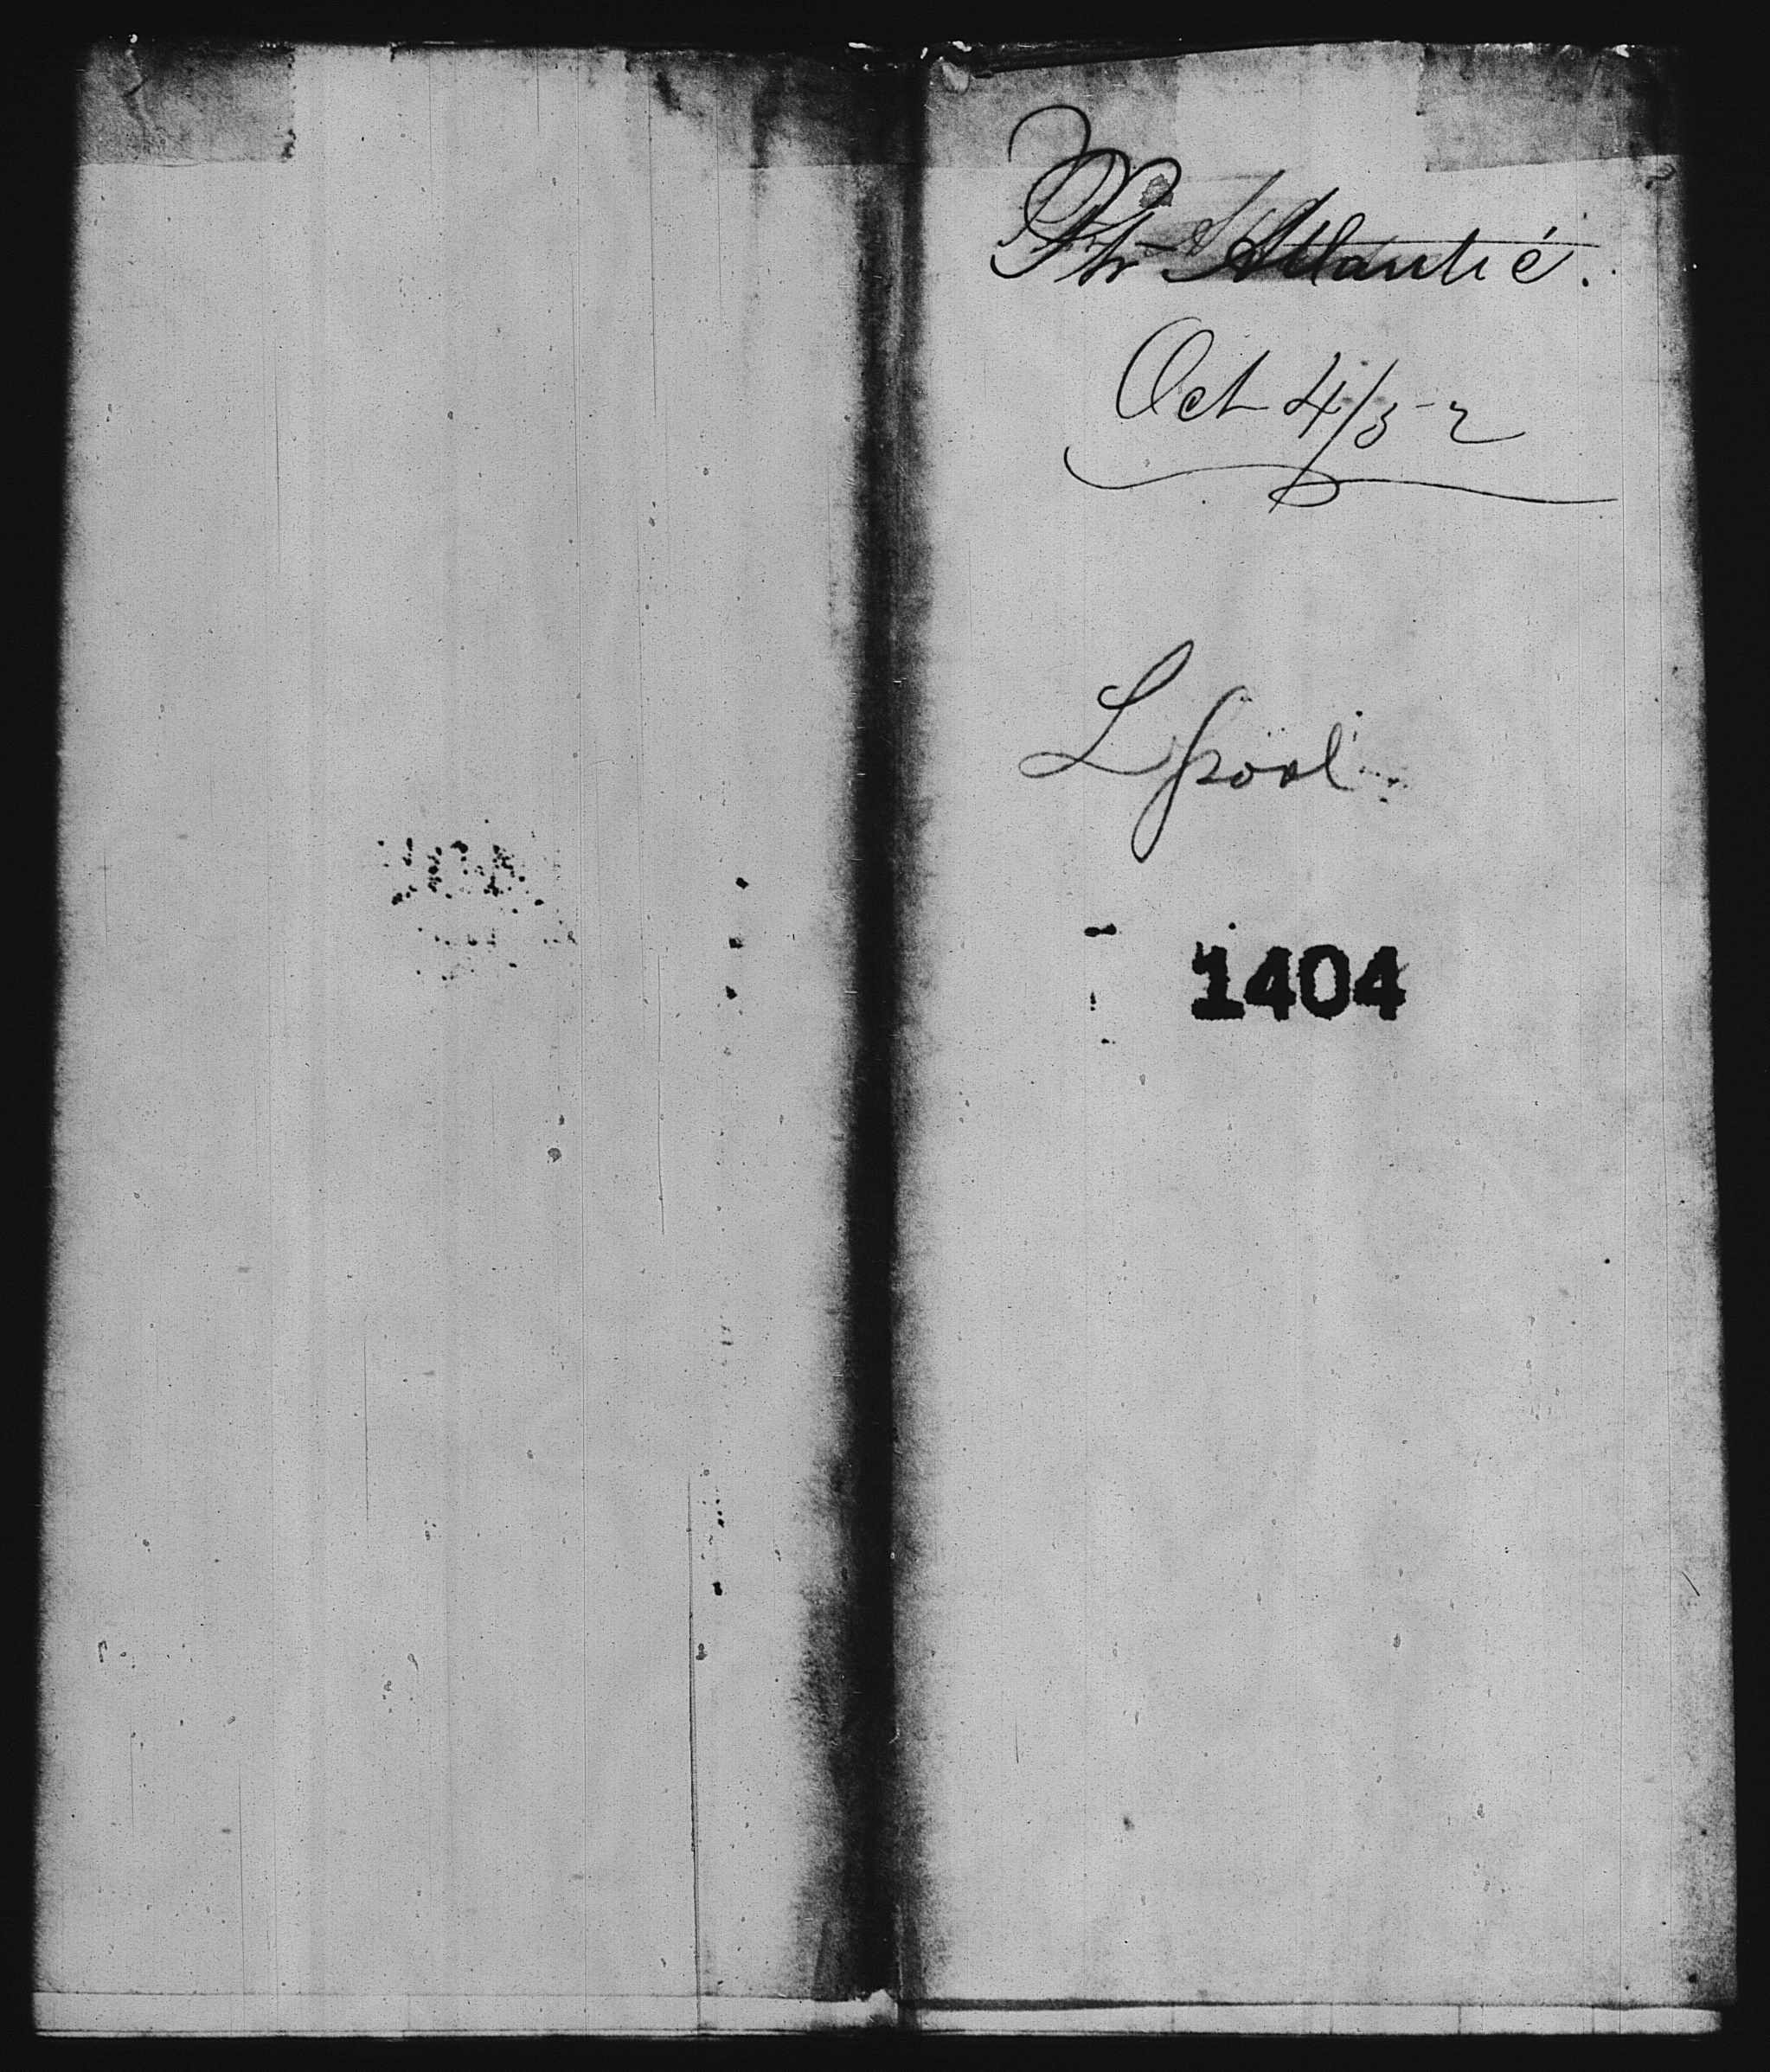 Str Atlantic.
Oct 4/52
Lpool
1404